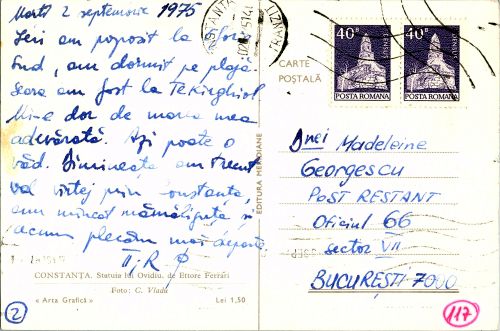 Marți 2 septembrie 1975
Ieri am poposit la Eforie
Sud, am dormit pe plajă
seara am fost la Tekirghiol
Mi-e dor de marea mea
adevărată. Azi poate o
văd. Dimineața am trecut
val vîrtej prin Constanța,
am mîncat mămăliguță și
acum plecăm mai departe
CONSTANȚA. Statuia lui Ovidiu, de Ettore Ferrari
Foto: C. Vladu
« Arta Grafică » Lei 1,50
2
EDITURA MERIDIANE
CARTE
POȘTALĂ
40 B
DENSUȘ
POSTA ROMANA
40 B
DENSUȘ
POSTA ROMANA
Dnei Madeleine
Georgescu
POST RESTANT
Oficiul 66
sector VII
BUCUREȘTI-7000
117